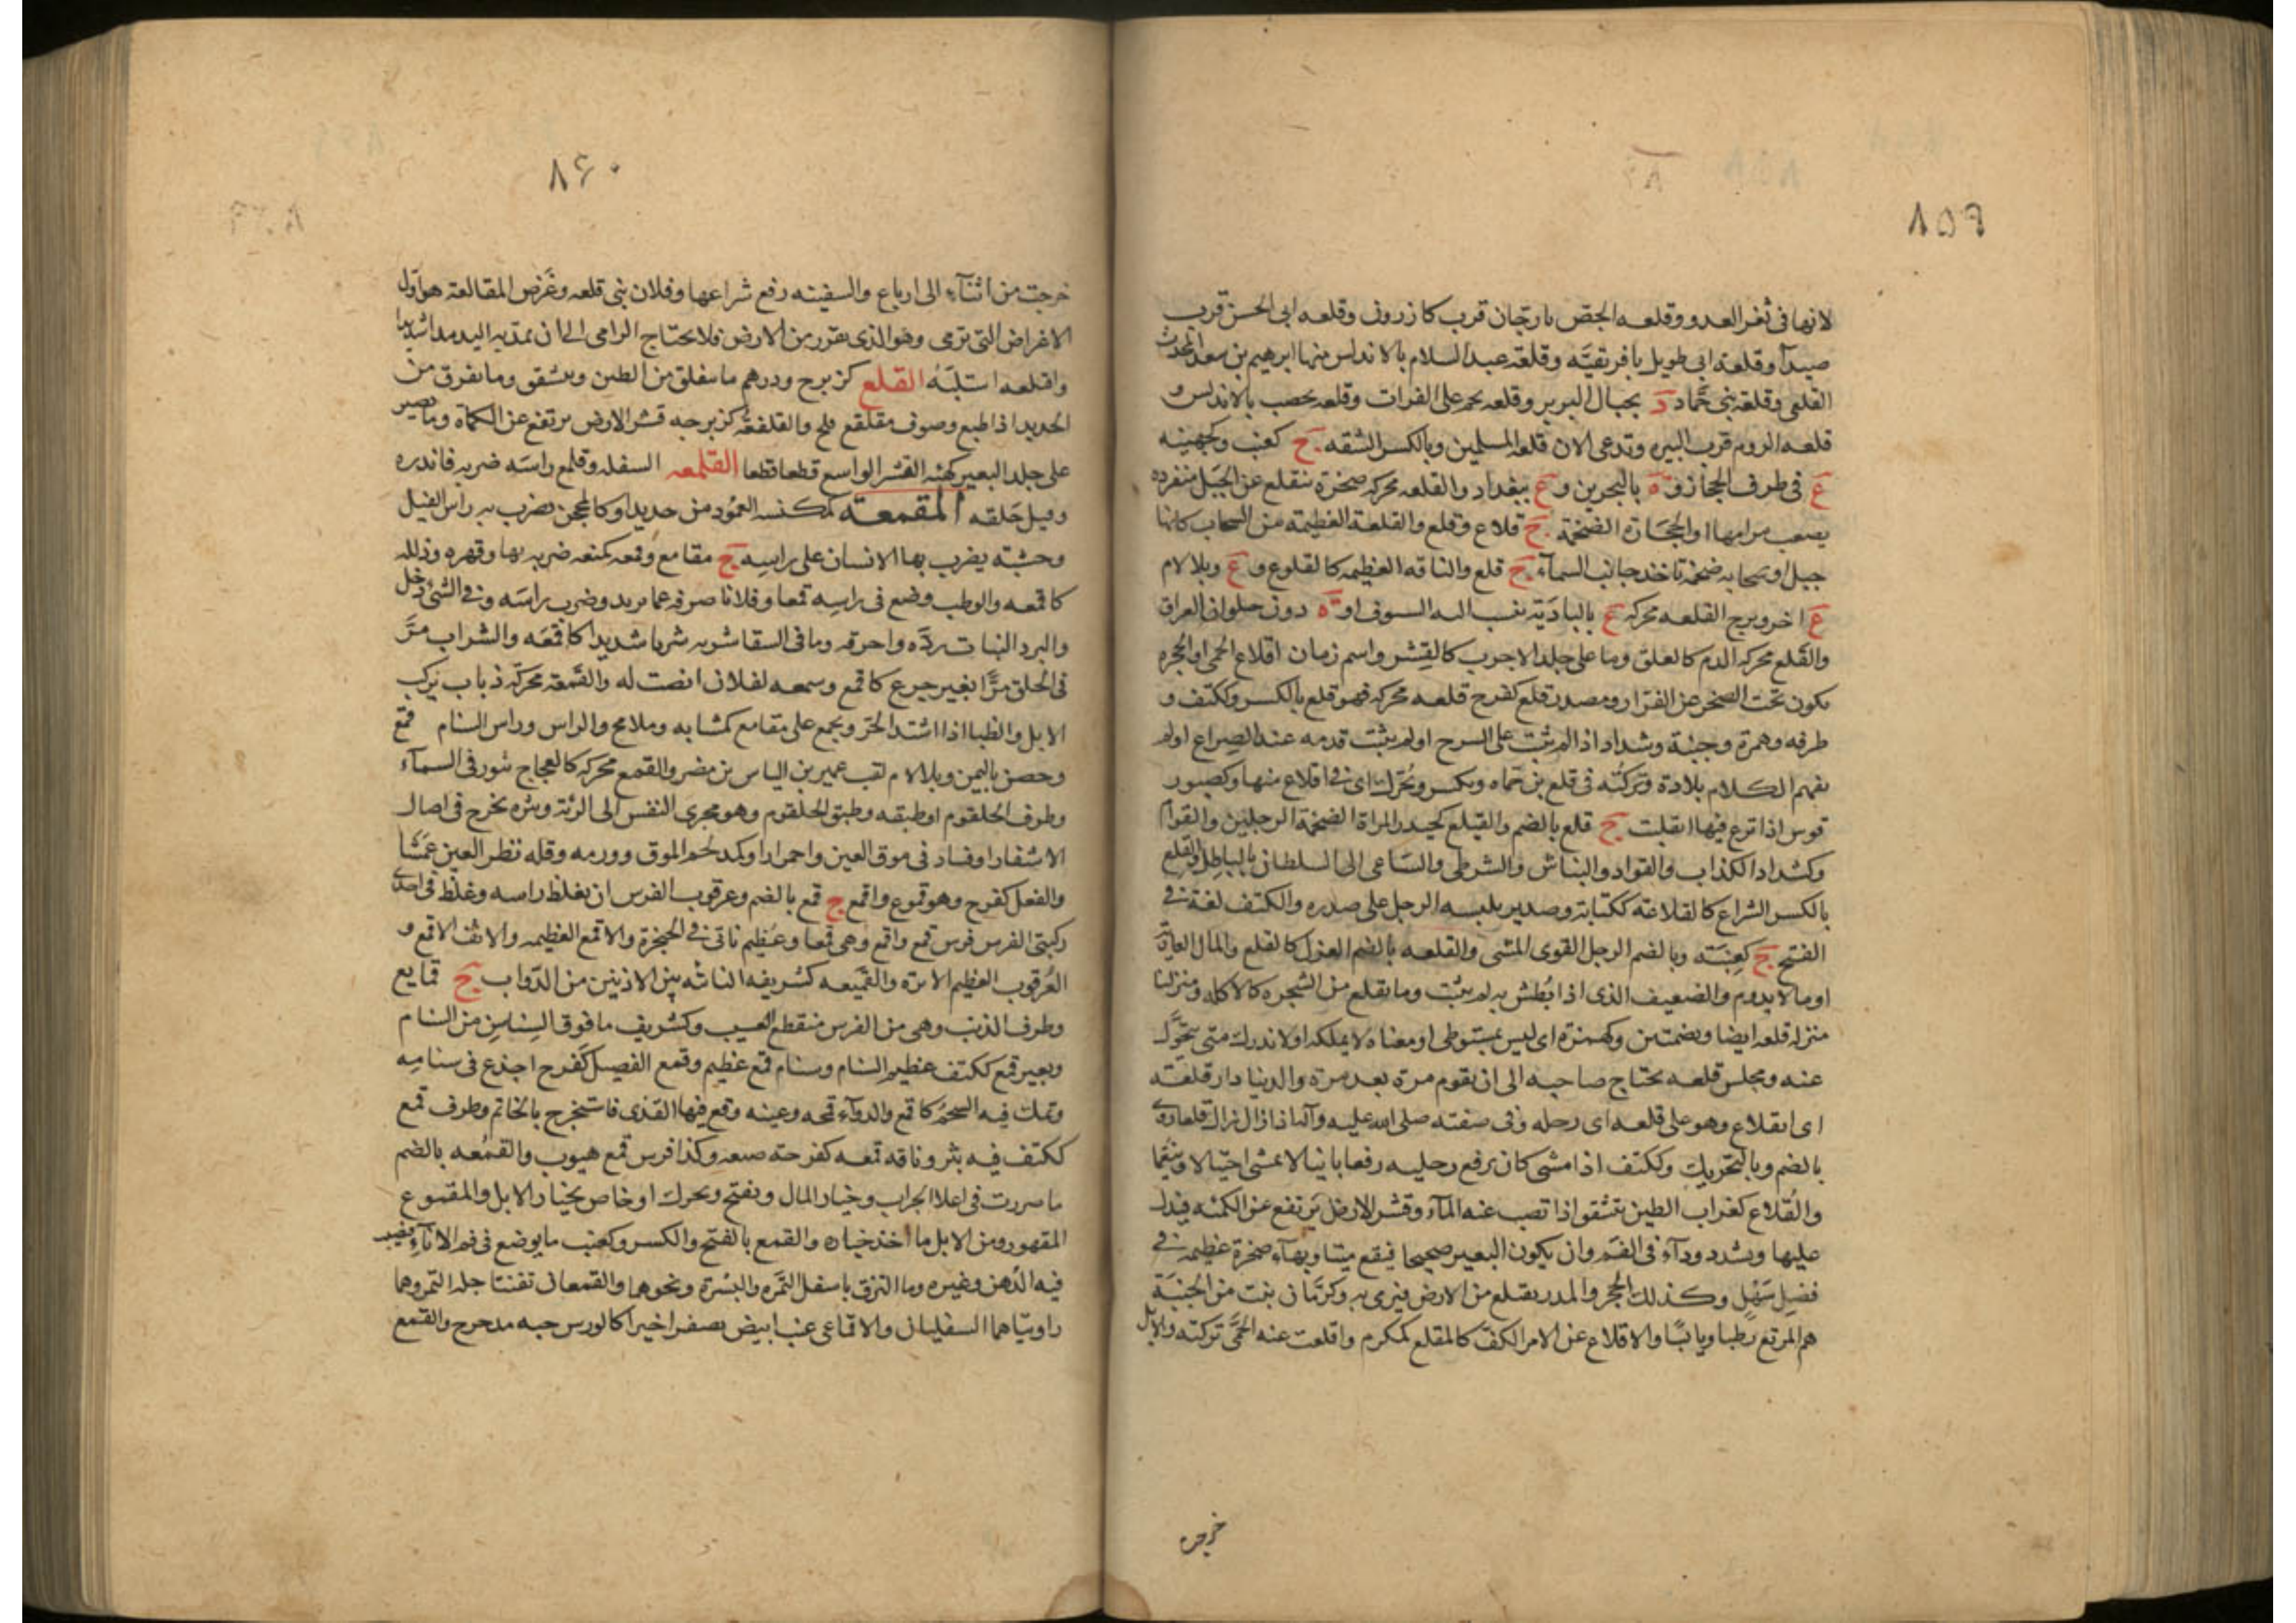 ٨٥٩
لانها فى ثغر العدو وقلعه الجص بارجان قرب كازرون وقلعه ابى الحسن قرب
صيدآ وقلعة ابى طويل بافريقيَّه وقلعة عبد السلام بالاندلس منها ابرهيم بن سعد المحدث
القلعى وقلعة بنى حمّاد د بجبال البربر وقلعه نجم على الفرات وقلعه يحصب بالاندلس و
قلعه الروم قرب البيره وتدعى الان قلعه المسلمين وبالكسر الشقه ج كعنب وكجهينه
ع فى طرف الحجاز و ة بالبحرين و ع ببغداد والقلعه محركه صخرة تنقلع عن الجبل منفرده
يصعب مرامها او الحجارة الضخمة ج قلاع وقلع والقلعة العظيمة من السحاب كانها
جبل او سحابه ضخمة تاخذ جانب السمآء ج قلع والناقه العظيمه كالقلوع و ع وبلا لام
ع اخر ومرج القلعه محركه ع بالبادية ينسب اليه السيوف او ة دون حلوان العراق
والقلع محركه الدم كالعلق وما على جلد الاجرب كالقشر واسم زمان اقلاع الحمى او الحجره
تكون تحت الصخر عن الفرّا ومصدر قلع كفرح قلعه محركه فهو قلع بالكسر وككتف و
طرفه وهمزة وجبنة وشداد اذا لم يثبت على السرج او لم يثبت قدمه عند الصراع او لم
يفهم الكلام بلادة وتركته فى قلع من حماه ويكسر ويُحرّك اى فى اقلاع منها وكصبور
قوس اذا نزع فيها انقلبت ج قلع بالضم والقيلع كحيدر المراة الضخمة الرجلين والقوام
وكشداد الكذاب والقواد والنباش والشرطى والساعى الى السلطان بالباطل والقلع
بالكسر الشراع كالقلاعة ككتابة وصدير يلبسه الرجل على صدره والكنف لغة فى
الفتح ج كعنبة وبالضم الرجل القوى المشى والقلعه بالضم العزل كالقلع والمال العارية
او ما لا يدوم والضعيف الذى اذا بُطش به لم يثبت وما يقلع من الشجره كالاكله ومنزلنا
منزل قلعه ايضا وبضمتين وكهمزة اى ليس بمستوطن او معناه لا يملكه او لا ندرى متى يتحوَّل
عنه ومجلس قلعه يحتاج صاحبه الى ان يقوم مرة بعد مرة والدنيا دار قلعة
اى انقلاع وهو على قلعه اى رحله وفى صفته صلى الله عليه وآله اذا زال زال قلعا روى
بالضم وبالتحريك وككتف اذا مشى كان يرفع رجليه رفعا باينا لا يمشى اختيالا وتنعّما
والقلاع كغراب الطين يتشقق اذا نضب عنه المآء وقشر الارض يرتفع عن الكمئه فيدل
عليها ويشدد ودآء فى الفم وان يكون البعير صحيحا فيقع ميتا وبهآء صخرة عظيمه فى
فضل سهل وكذلك الحجر والمدر يقتلع من الارض فيرمى به وكرمّان نبت من الجنبة
هم المرتع رَطبا ويابسًا والاقلاع عن الامر الكف كالمقلع كمكرم واقلعت عنه الحمّى تركته والابل
خرجت
٨۶٠
خرجت من اثنآء الى ارباع والسفينه رفع شراعها وفلان بنى قلعه وغَرَض المقالعة هو اول
الاغراض التى ترمى وهو الذى يقرب من الارض فلا يحتاج الرامى الى ان يمد به اليد مدا شديدا
واقتلعه استلبَهُ القلع كزبرج ودرهم ما يتفلق من الطين ويتشقق وما تفرق من
الحديد اذا طبع وصوف مقلقع والقلفعة كزبرجه قشر الارض يرتفع عن الكماة وما يصير
على جلد البعير كهيئه القشر الواسع قطعا قطعا القلمعه السفله وقلمع راسَه ضربه فاندره
وقيل حَلقه المقمعة كمكنسه العمُود من حديد او كالمحجن يضرب به راس الفيل
وخشبة يضرب بها الانسان على راسِه ج مقامع وقمعه كمنعه ضربه بها وقهره وذلله
كاقمعه والوطب وضع فى راسِه قمعا وفلانا صرفه عما يريد وضرب راسَه وفى الشئ دخل
والبرد النبات ردَّه واحرقه وما فى السقا شربه شربا شديدا كاقتمعَه والشراب مرَّ
فى الحلق مرًّا بغير جرع كاقمع وسمعه لفلان انصت له والقَمَعة محركَة ذباب يركب
الابل والظبا اذا اشتد الحَرّ ويجمع على مقامع كمشابه وملامح والراس وراس السنام قمع
وحصن باليمن وبلا لام لقب عمير بن الياس بن مضر والقمع محركه كالعجاج يثور فى السمآء
وطرف الحلقوم او طبقه وطبق الحلقوم وهو مجرى النفس الى الرئة وبثره تخرج فى اصال
الاشفار او فساد فى موق العين واحمرار او كمد لحم الموق وورمه وقله نظر العين عَمَشا
والفعل كفرح وهو قموع واقمع ج قمع بالضم وعرقوب الفرس ان يغلظ راسه وغلظ فى احدى
ركبتى الفرس فرس قمع واقمع وهى قمعا وعُظيم ناتئ فى الحنجرة والاقمع العظيمه والانف الاقمع و
العُرقوب العظيم الابرَة والقَمِيعه كشريفه الناشه بين الاذنين من الدّواب ج قمايع
وطرف الذنب وهى من الفرس منقطع العسيب وكشريف ما فوق السَناسِن من السنام
وبعير قمع ككتف عظيم السنام وسنام قمع عظيم وقمع الفصيل كفرح اجذع فى سنامه
وتمك فيه الشحم كاقمع والدوآء قمحه وعينه وقع فيها القذى فاستخرج بالخاتم وطرف قمع
ككتف فيه بثر وناقه قمعه كفرحته ضبعه وكذا فرس قمع هيوب والقمُعه بالضم
ما صررت فى اعلا الجراب وخيار المال ويفتح ويحرك او خاص بخيار الابل والمقموع
المقهور ومن الابل ما اخذ خياره والقمع بالفتح والكسر وكعنب ما يوضع فى فم الانآء فيصب
فيه الدهن وغيره وما التزق باسفل التمَره والبُسْرة ونحوهما والقمعان ثفنتا جلد التمر وهما
زاويتاهما السفليان والاقماعى عنب ابيض يصفر اخيرا كالورس حبه مدحرج والقمع